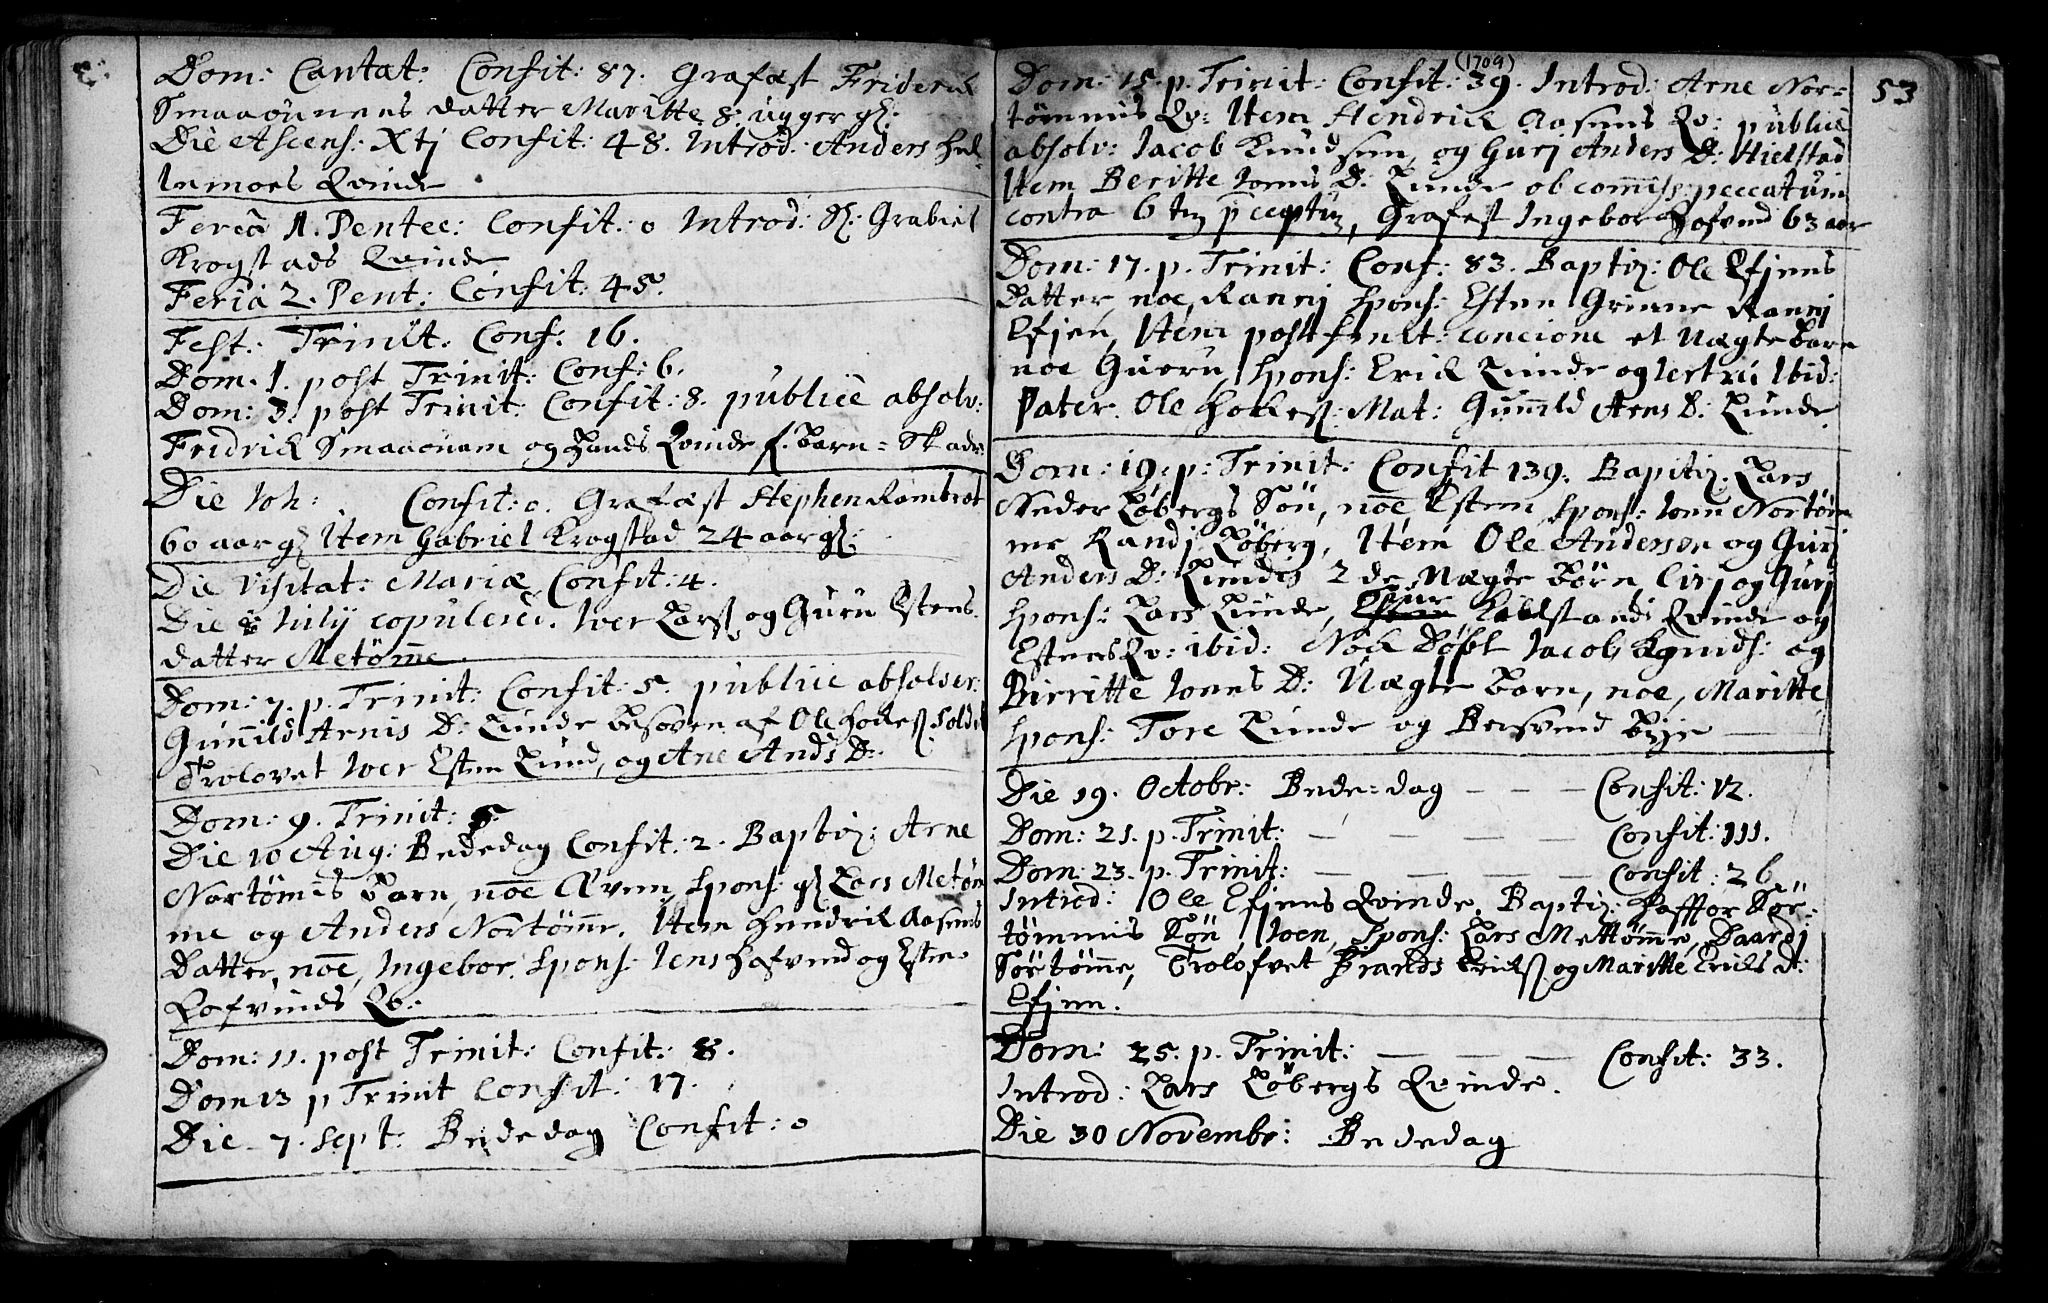 Dom: Cantat: Confit: 87. Grafæst Friderik
Smaaounens datter Maritte 8: ugger gl:
Die Ascens: Xtj Confit: 48. Introd: Anders Hel
lemoes Qvinde
Feria 1. Pentec: Confit: 0 Introd: Sl: Grabiel
Krogstads Qvinde
Feria 2. Pent: Confit: 45.
Fest: Trinit. Conf: 16.
Dom. 1. post Trinit: Conf: 6.
Dom: 3. post Trinit: Confit: 8. publicè absolv:
Fridrick Smaaounem og Hands Qvinde f. barn =
Die Joh: Confit: 0. Grafæst Stephen Rømbrot
60 aar gl Item Gabriel Krogstad 24 aar gl:
Die Visitat: Mariæ Confit: 4.
Die Julij copulered. Iver Larss. og Guru Estens
datter Metømme
Dom: 7. p. Trinit: Confit: 5. publicè absolver:
Gunnild Arnis D: Lunde besovren af Ole Solda
Trolovet Iver Esten Lund, og Ane Ands D:
Dom: 9. Trinit: 5.
Die 10 Aug: Bededag Confit: 2. Baptiz: Arne
Nortømes barn, noe Qvem, Spons: gl Lars Metøm
me og Anders Nortømme. Item Hendrick Aasens
Datter, noe, Ingebor. Spons: Jens Hofvend og Esten
Hofvinds Qv:
Dom: 11. post Trinit: Confit: 8.
Dom 13 p Trinit Confit: 17.
Die 7. Sept: Bededag Confit: 0
(1709)
53
Dom: 15. p. Trinit: Confit: 39. Introd: Arne Nor=
tømmis Qv: Item Hendrick Aasens Qv: publicè
absolv: Jacob Knudsen, og Gurj Anders D: Hielstad
Item Beritte Jonis D: Lunde ob commiss: peccatum
contra 6 tm pceptum, Grafest Ingebor Hofvend 63 aar
Dom: 17. p. Trinit: Conf: 83. Baptiz: Ole Efjens
Datter, noe, Rannj Spons: Esten Grinne Rannj
Efjen, Item post finit: concione et Uægte barn
noe Guru, Spons: Erick Lunde og Jertru Ibid:
Pater. Ole Mat: Gunild Arns D: Lunde.
Dom: 19. p: Trinit: Confit 139. Baptiz. Lars
Neder Løbergs Søn, noe Esten, Spons: Jonn Nortøm
me Randj Løberg, Item Ole Anderssen og Gurj
Anders D: Lundes 2 de Uægte børn Cirj og Gurj
Spons: Lars Lunde, Qvinde og
Estens Qv: ibid: Nock døbt Jacob Knuds: og
Birritte Jones D: Uægte barn, noe, Maritte
Spons: Tore Lunde og Bersvend Bye
Die 19. Octobr: Bede=dag — — — Confit: 12.
Dom: 21. p. Trinit: — — — — Confit: 111.
Dom: 23. p. Trinit: — — — — Confit: 26
Introd: Ole Efjens Qvinde. Baptiz: Haffor Sør=
tømmis Søn, Joen, Spons: Lars Mettømme, Baardj
Sørtømme, Trolofvet Brands Erickss og Maritte Ericks d:
Efjen.
Dom: 25. p. Trinit: — — — Confit: 33.
Introd: Lars Løbergs Qvinde.
Die 30 Novembr: Bededag